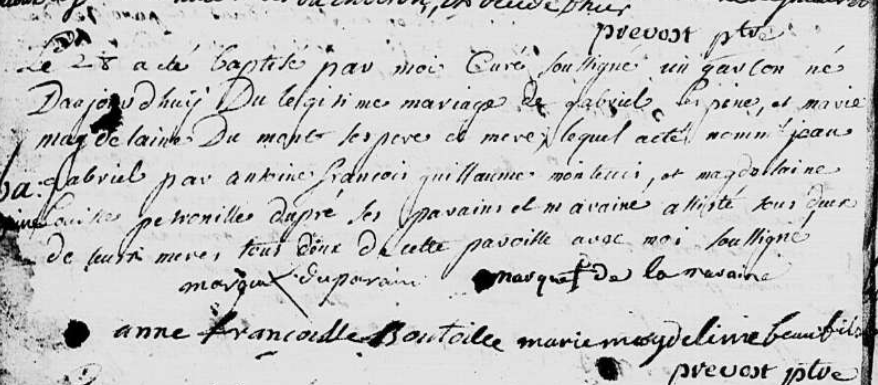 prevost ptre
Le 28 a eté baptisé par moi Curé soussigné un garcon né
Daujourdhuij Du legitime mariage de gabriel lespine, et marie
magdelaine Du mont ses pere et mere, lequel a eté nommé jean
gabriel par antoine françois guillaume, et magdelaine
Louise petronille dupré ses parains et maraine assisté tous deux
de leurs meres tous deux de cette paroisse avec moi soussigné
marque X du parain marque † de la maraine
anne francoisse Boutoilee marie magdeleinne beaufils
prevost ptre